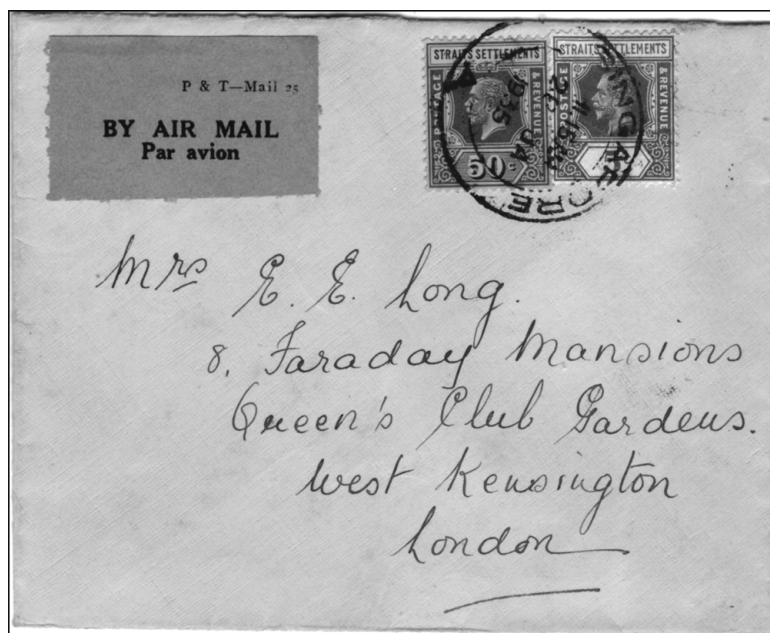 P & T—Mail 25
BY AIR MAIL
Par avion
STRAITS SETTLEMENTS
POSTAGE
& REVENUE
50 c
STRAITS SETTLEMENTS
POSTAGE
& REVENUE
SINGAPORE
A
1935
Mrs E. E. Long.
8, Faraday Mansions
Queen's Club Gardens.
West Kensington
London